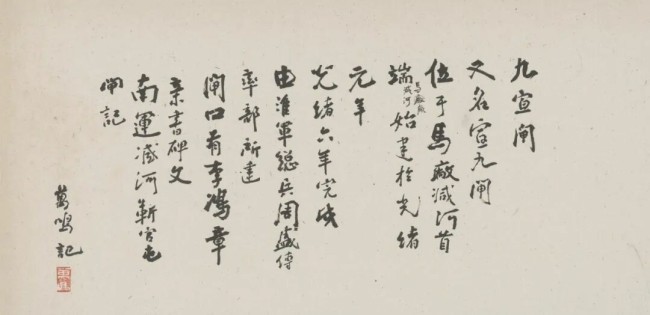 九宣閘
又名宣九閘
位于馬廠减河首
端始建於光緒
元年
光緒六年完成
由淮軍総兵周盛傳
率部所建
閘口有李鴻章
亲書碑文
南運减河靳官屯
閘記
萬鳴記